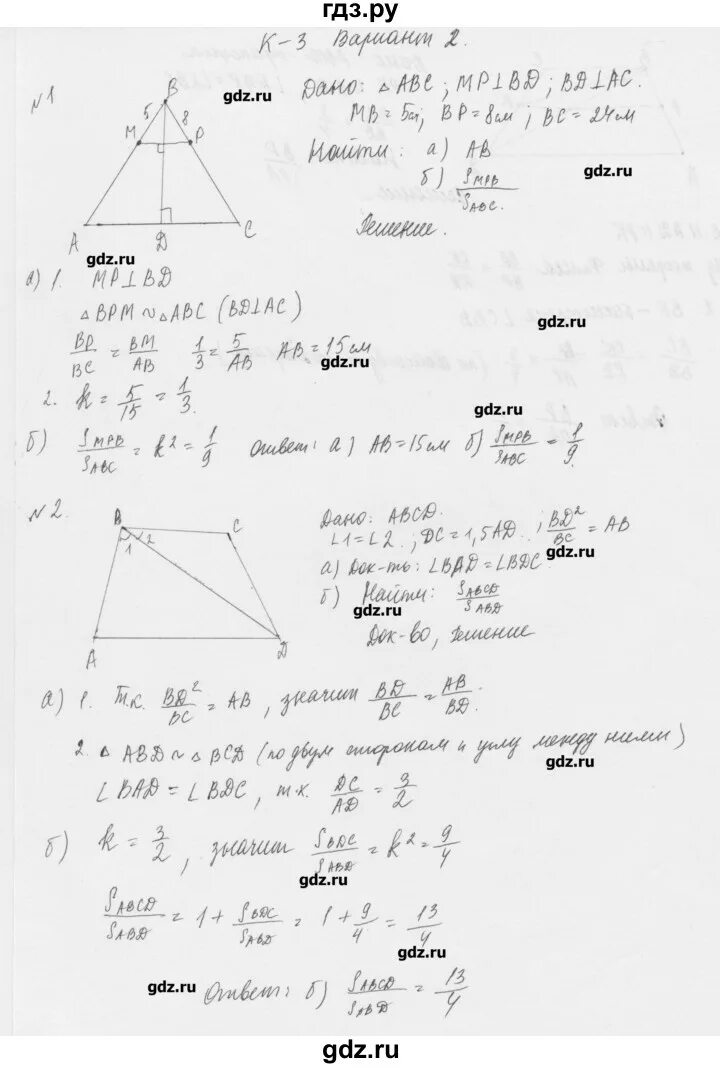 гдз.ру
К-3 Вариант 2.
№1
Дано: △ABC; MP⊥BD; BD⊥AC.
MB=5см; BP=8см; BC=24см
Найти: а) AB
б) S_MPB/S_ABC.
Решение.
B
5
8
M
P
A
D
C
gdz.ru
gdz.ru
gdz.ru
а) 1. MP⊥BD
△BPM ~ △ABC (BD⊥AC)
BP/BC = BM/AB 1/3 = 5/AB AB=15см
2. k = 5/15 = 1/3.
gdz.ru
gdz.ru
gdz.ru
б) S_MPB/S_ABC = k² = 1/9 ответ: а) AB=15см б) S_MPB/S_ABC = 1/9.
gdz.ru
№2.
Дано: ABCD.
∠1=∠2.; DC=1,5AD.; BD²/BC = AB
а) Док-ть: ∠BAD=∠BDC.
б) Найти: S_ABCD/S_ABD
Док-во, решение
B
C
1
2
A
D
gdz.ru
gdz.ru
а) 1. Т.к. BD²/BC = AB, значит BD/BC = AB/BD.
2. △ABD ~ △BCD (по двум сторонам и углу между ними)
∠BAD = ∠BDC, т.к. DC/AD = 3/2
gdz.ru
б) k = 3/2, значит S_BDC/S_ABD = k² = 9/4
gdz.ru
S_ABCD/S_ABD = 1 + S_BDC/S_ABD = 1 + 9/4 = 13/4
gdz.ru
gdz.ru
Ответ: б) S_ABCD/S_ABD = 13/4
gdz.ru